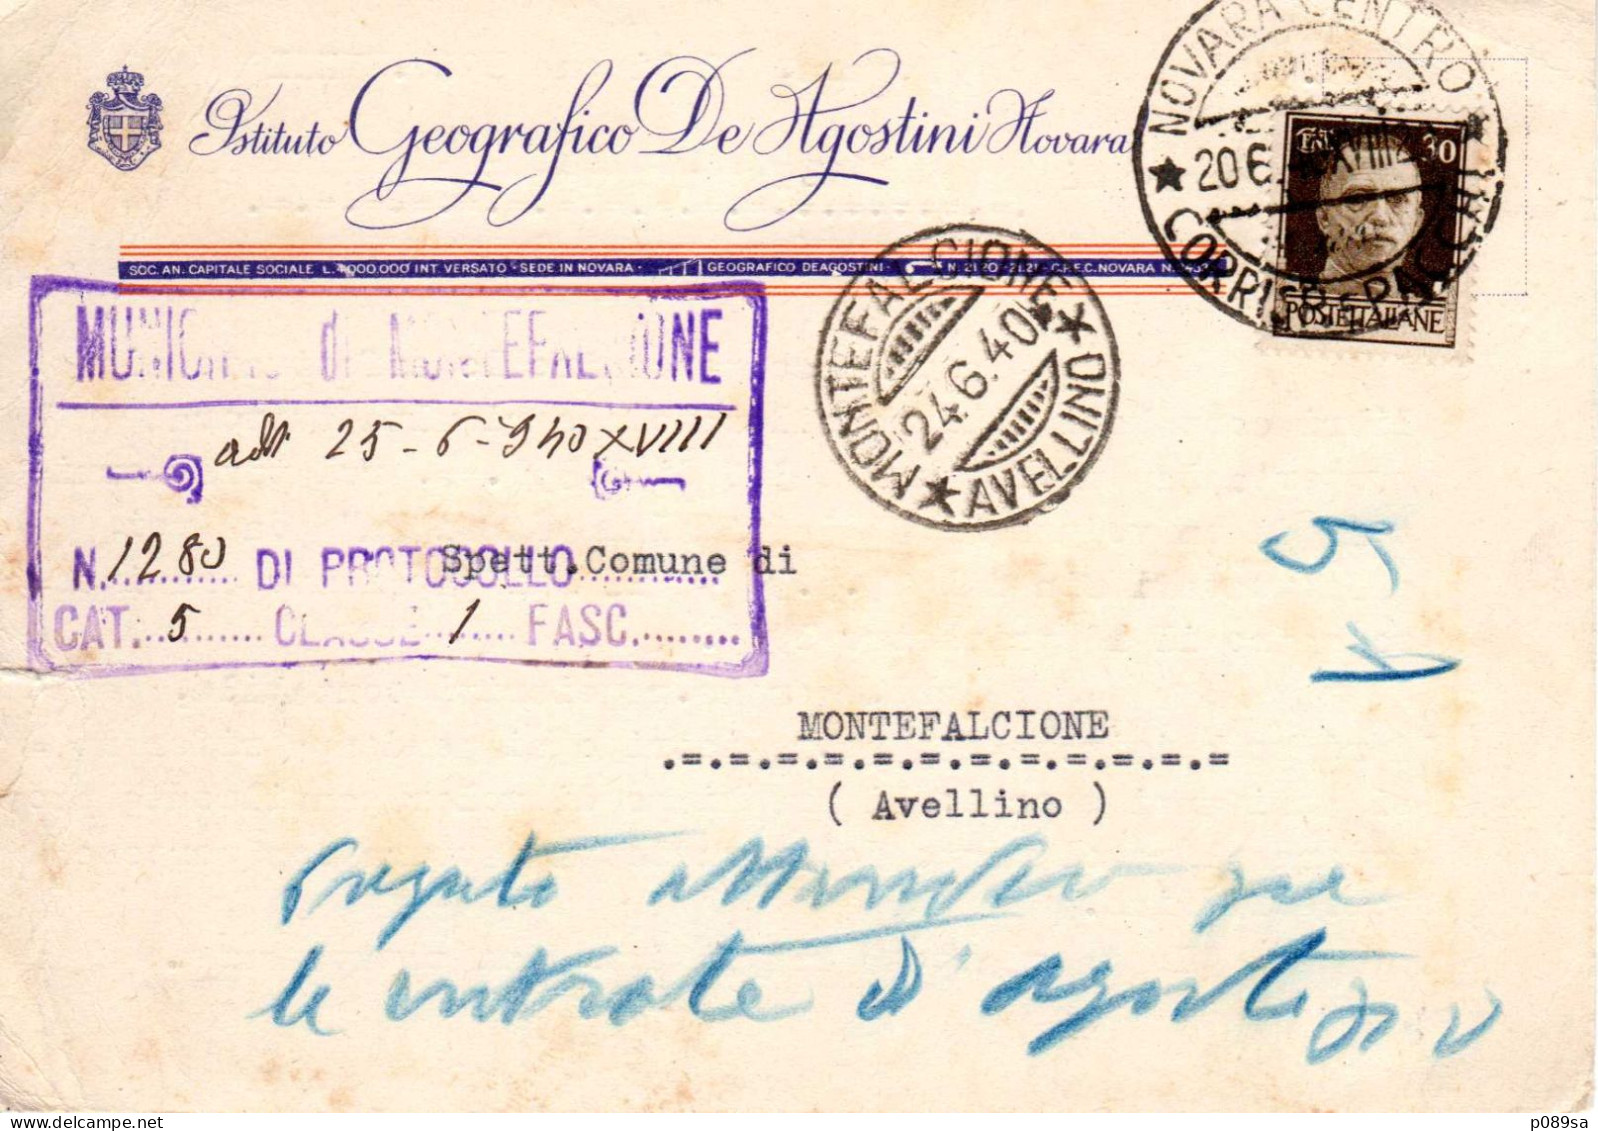 Istituto Geografico De Agostini Novara
NOVARA CENTRO
CORRISP. PACCHI
20 6 XVIII
30
POSTE ITALIANE
SOC. AN. CAPITALE SOCIALE L. 4.000.000 INT. VERSATO - SEDE IN NOVARA - GEOGRAFICO DEAGOSTINI - N. 21-20 - 21-21 - C.P.E.C. NOVARA N.
MONTEFALCIONE
24.6.40
AVELLINO
MUNICIPIO di MONTEFALCIONE
addì 25-6-940 XVIII
N. 1280 DI PROTOCOLLO
Spett.Comune di
CAT. 5 CLASSE 1 FASC.
MONTEFALCIONE
.=.=.=.=.=.=.=.=.=.=.=.=
( Avellino )
le entrate d'agosto
p089sa